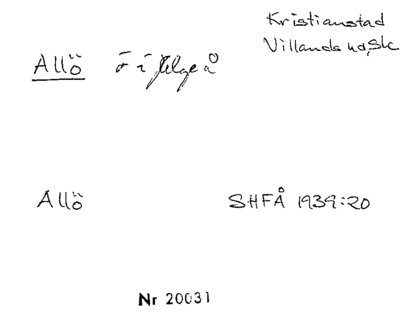 Kristianstad
Villands hd, Sk
Allö ö i Helgeå
Allö SHFÅ 1939:20
Nr 20031